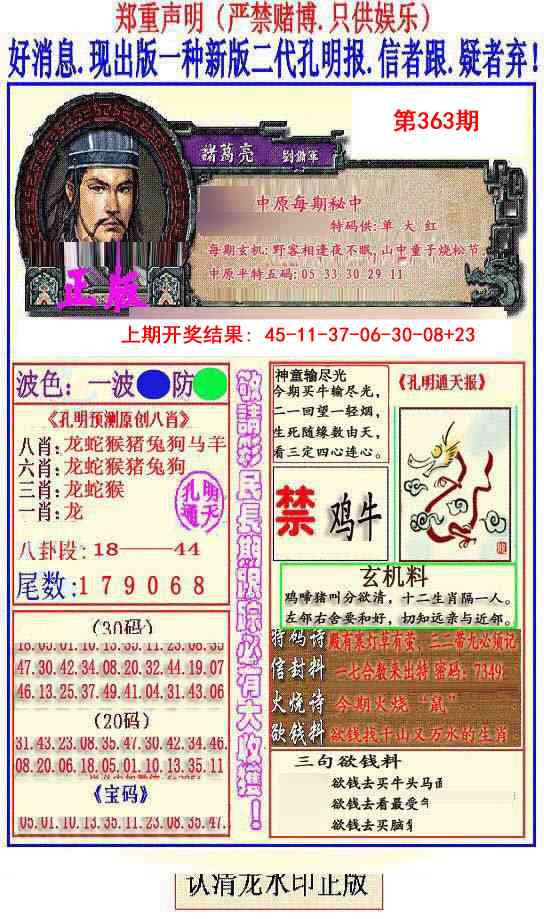 郑重声明（严禁赌博.只供娱乐）
好消息.现出版一种新版二代孔明报.信者跟.疑者弃!
第363期
諸葛亮 劉備軍
中原每期秘中
特码供:单 大 红
每期玄机:野客相逢夜不眠,山中童子烧松节
中原平特五码:05 33 30 29 11
正版
上期开奖结果: 45-11-37-06-30-08+23
波色：一波 防
《孔明预测原创八肖》
八肖:龙蛇猴猪兔狗马羊
六肖:龙蛇猴猪兔狗
三肖:龙蛇猴
一肖:龙
孔明
通天
八卦段:18——44
尾数:179068
(30码)
18.05.01.10.13.35.11.23.08.35
47.30.42.34.08.20.32.44.19.07
46.13.25.37.49.41.04.31.43.06
(20码)
31.43.23.08.35.47.30.42.34.46.
08.20.06.18.05.01.10.13.35.11
《宝码》
05.01.10.13.35.11.23.08.35.47.
敬請彩民長期跟踪必有大收獲！
神童输尽光
今期买牛输尽光，
二一回望一轻烟，
生死随缘数由天，
看三定四心连心。
《孔明通天报》
禁 鸡牛
玄机料
鸡啼猪叫分欲清，十二生肖隔一人。
左邻右舍要和好，切知远亲与近邻。
特码诗 殿有寒灯草有萤，三二带九必须记
信封料 一七合数来出特 密码：7349
火烧诗 今期火烧“鼠”
欲钱料 欲钱找千山又万水的生肖
三句欲钱料
欲钱去买牛头马面
欲钱去看最受
欲钱去买脑
认清龙水印正版